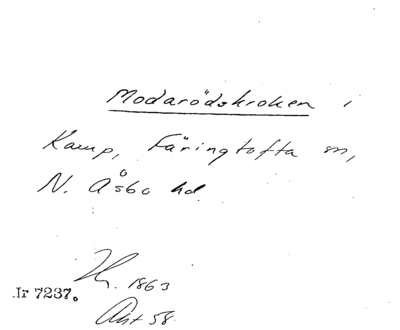 Modarödskroken i
Kamp, Färingtofta sn,
N. Åsbo hd.
1863
.Ir 7237.
58.